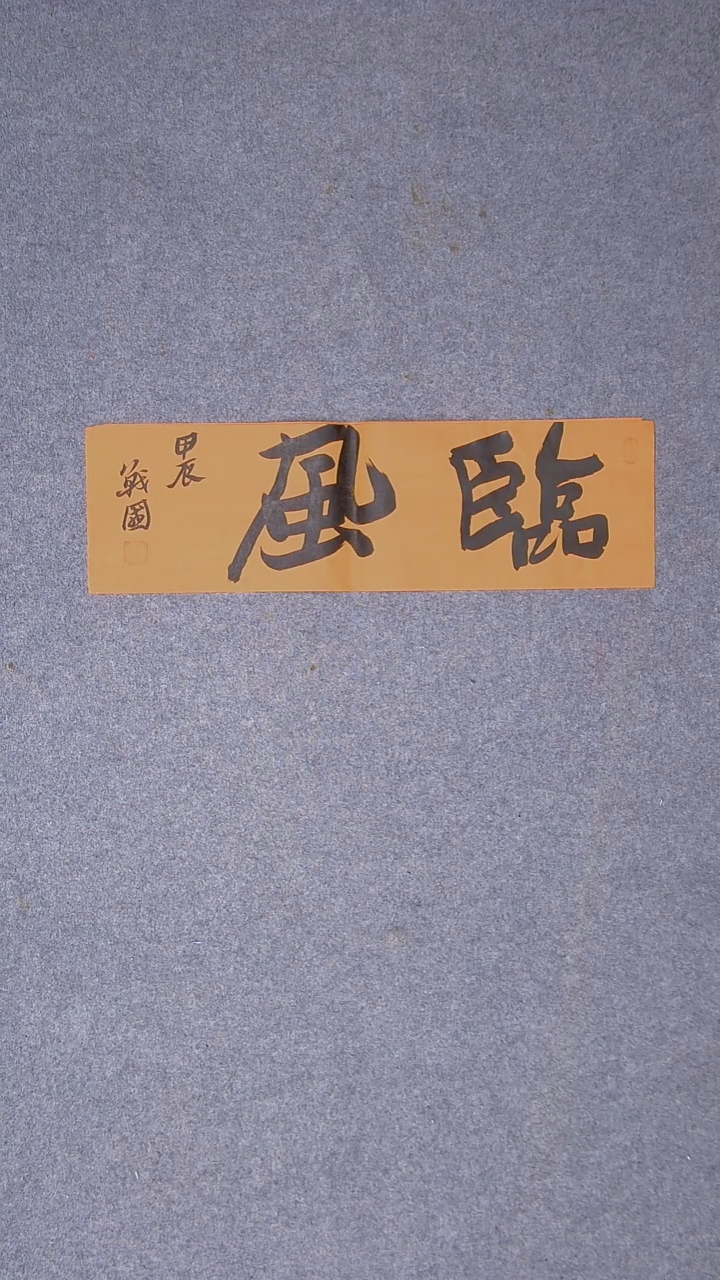 臨風
甲辰
戰國